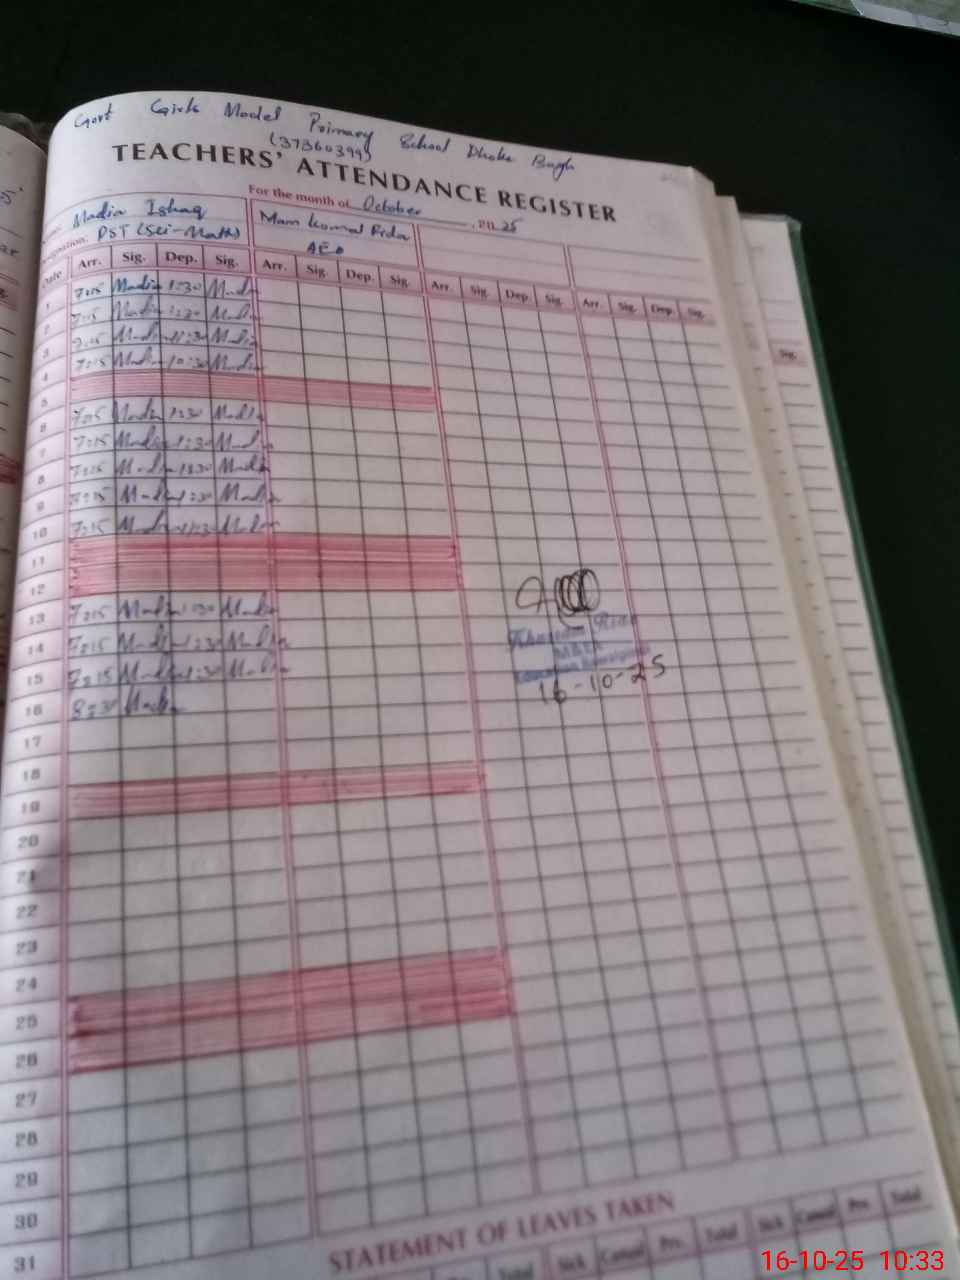 Govt Girls Model Primary School Dhoke Bagh
(37360399)
TEACHERS' ATTENDANCE REGISTER
For the month of October, 2025
Madia Ishaq
Mam Komal Fida
PST (Sci-Math)
AEO
Date Arr. Sig. Dep. Sig. Arr. Sig. Dep. Sig. Arr. Sig. Dep. Sig. Arr. Sig. Dep. Sig.
1 7:15 Madia 1:30 Madia
2 7:15 Madia 1:30 Madia
3 7:15 Madia 11:30 Madia
4 7:15 Madia 10:30 Madia
5
6 7:15 Madia 1:30 Madia
7 7:15 Madia 1:30 Madia
8 7:15 Madia 1:30 Madia
9 7:15 Madia 1:30 Madia
10 7:15 Madia 11:30 Madia
11
12
13 7:15 Madia 1:30 Madia
14 7:15 Madia 1:30 Madia
15 7:15 Madia 1:30 Madia
16 8:30 Madia
16-10-25
17
18
19
20
21
22
23
24
25
26
27
28
29
30
31
STATEMENT OF LEAVES TAKEN
Total Sick Casual Prv. Total Sick Casual Prv. Total
Sig.
16-10-25 10:33